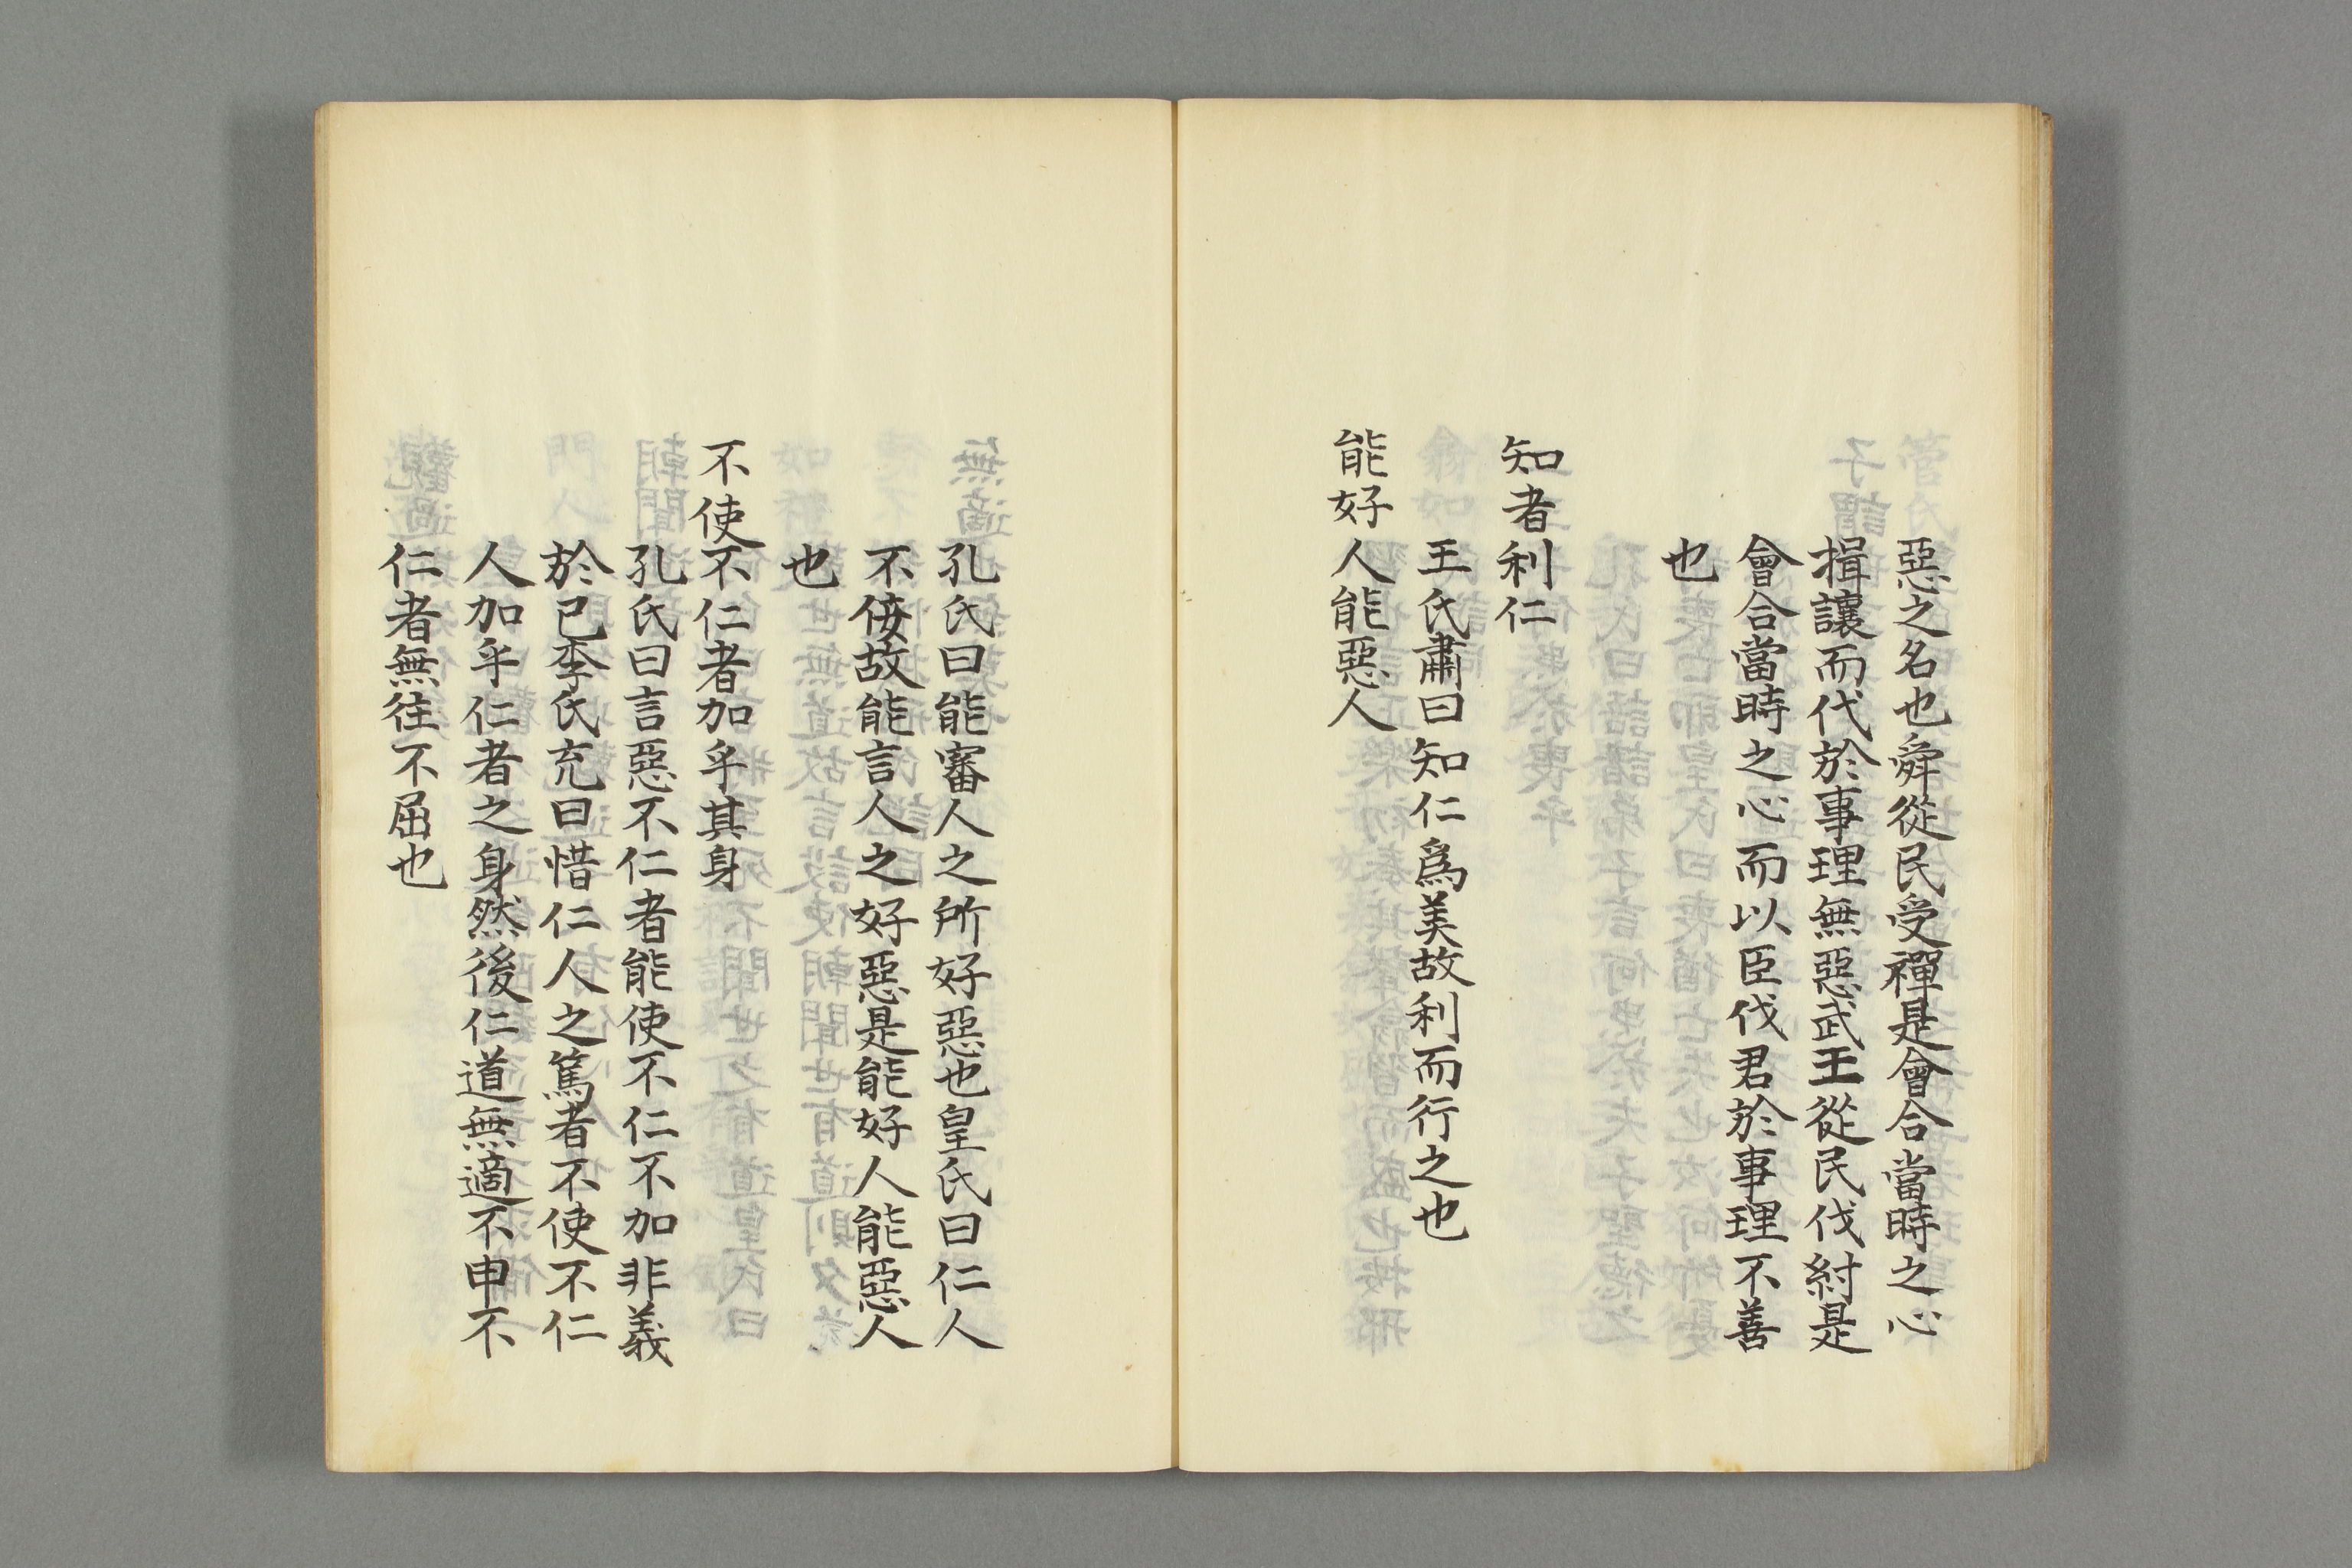 惡之名也舜從民受禪是會合當時之心
揖讓而代於事理無惡武王從民伐紂是
會合當時之心而以臣伐君於事理不善
也
知者利仁
王氏肅曰知仁爲美故利而行之也
能好人能惡人
孔氏曰能審人之所好惡也皇氏曰仁人
不佞故能言人之好惡是能好人能惡人
也
不使不仁者加乎其身
孔氏曰言惡不仁者能使不仁不加非義
於己李氏充曰惜仁人之篤者不使不仁
人加乎仁者之身然後仁道無適不申不
仁者無往不屈也